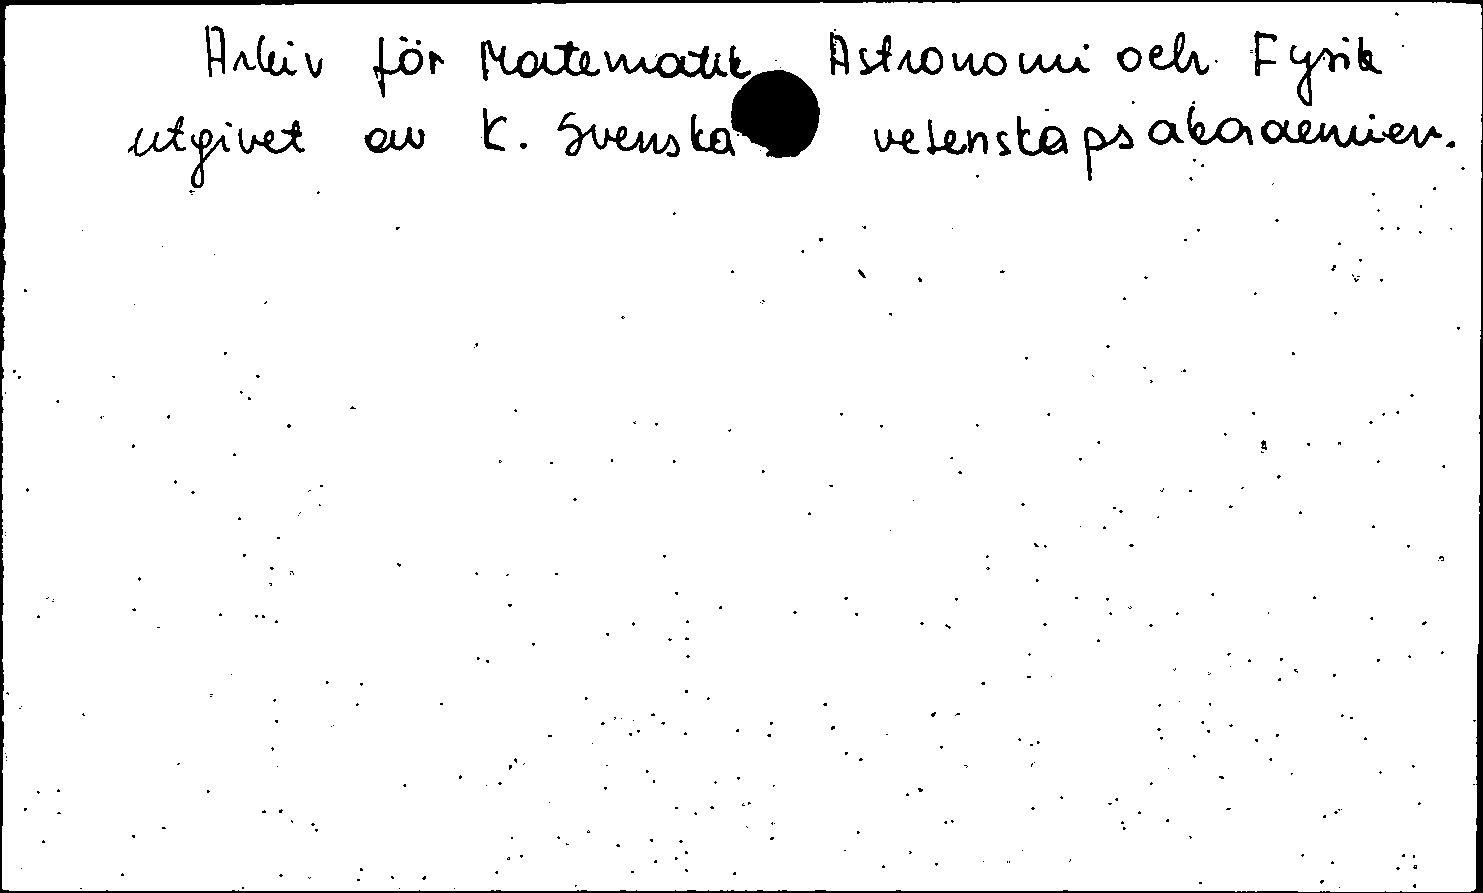 Arkiv för Matematik Astronomi och Fysik
utgivet av K. Svenska vetenskapsakademien.